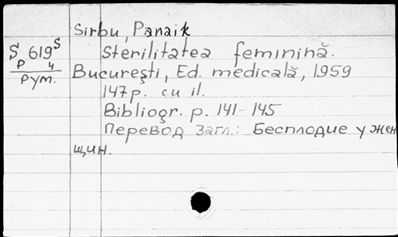 Sirbu, Panait
S 619 S Sterilitatea feminină.
P 4 Bucureşti, Ed. medicală, 1959
Рум. 147 p. cu il.
Bibliogr. p. 141-145
Перевод загл.: Бесплодие у жен
щин.